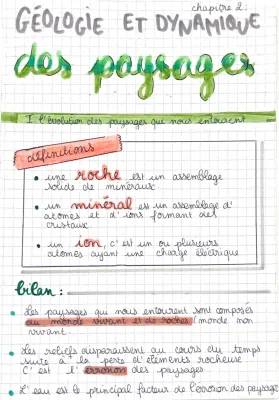 chapitre 2:
GÉOLOGIE ET DYNAMIQUE
des paysages
I l'évolution des paysages qui nous entourent
définitions
• une roche est un assemblage
solide de minéraux
• un minéral est un assemblage d'
atomes et d'ions formant des
cristaux
• un ion, c'est un ou plusieurs
atomes ayant une charge électrique
bilan:
• les paysages qui nous entourent sont composés
du monde vivant et de roches / monde non
vivant
• les reliefs disparaissent au cours du temps
suite à la perte d'éléments rocheuse
C'est l'érosion des paysages
• L'eau est le principal facteur de l'érosion des paysage